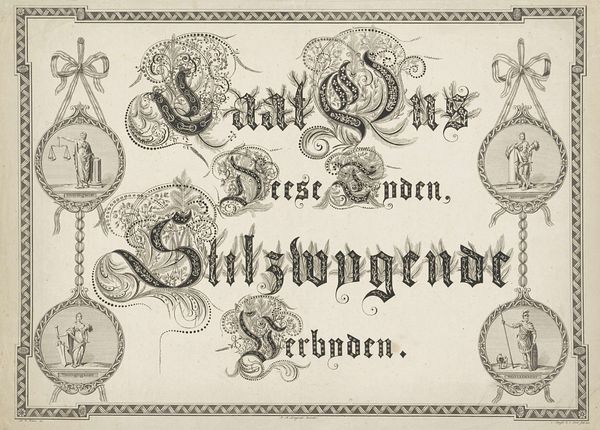 Laat Ons
Deese Tyden,
Stilzwygende
Verbyden.